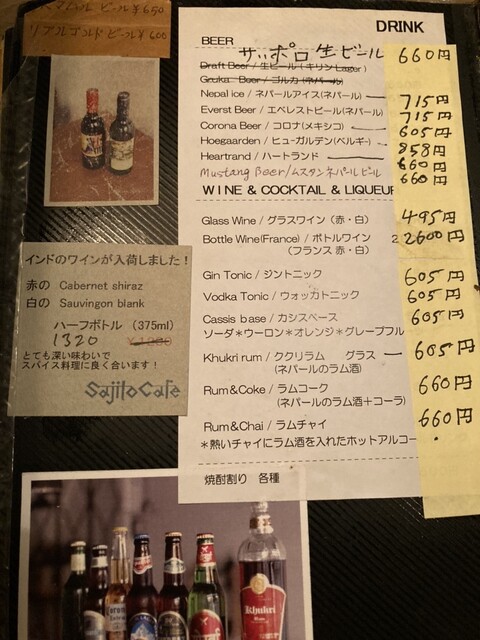 ビール ¥650
リアルゴールド ビール ¥600
DRINK
BEER
サッポロ生ビール 660円
Draft Beer / 生ビール (キリン Lager)
Gouka Beer / ゴルカ (ネパール)
Nepal ice / ネパールアイス(ネパール) 715円
Everst Beer / エベレストビール(ネパール) 715円
Corona Beer / コロナ(メキシコ) 605円
Hoegaarden / ヒューガルデン(ベルギー) 858円
Heartrand / ハートランド 660円
Mustang Beer / ムスタンネパールビール 660円
WINE & COCKTAIL & LIQUEUR
Glass Wine / グラスワイン (赤・白) 495円
Bottle Wine(France) / ボトルワイン 2 2600円
(フランス 赤・白)
Gin Tonic / ジントニック 605円
Vodka Tonic / ウォッカトニック 605円
Cassis base / カシスベース 605円
ソーダ*ウーロン*オレンジ*グレープフル
Khukri rum / ククリラム グラス 605円
(ネパールのラム酒)
Rum&Coke / ラムコーク 660円
(ネパールのラム酒+コーラ)
Rum&Chai / ラムチャイ 660円
*熱いチャイにラム酒を入れたホットアルコー
焼酎割り 各種
インドのワインが入荷しました!
赤の Cabernet shiraz
白の Sauvingon blank
ハーフボトル (375ml)
1320
とても深い味わいで
スパイス料理に良く合います!
Sajilo Cafe
Corona
Khukri
Rum